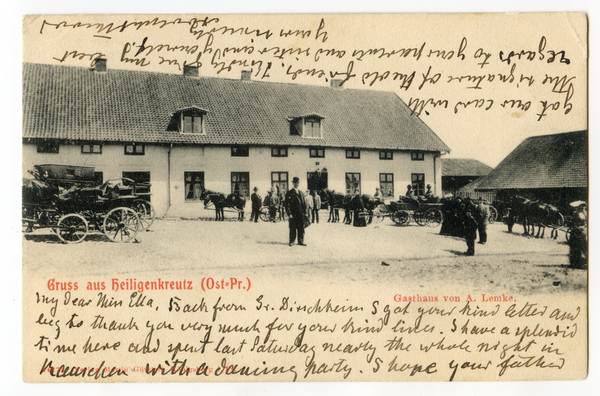 Gruss aus Heiligenkreutz (Ost-Pr.)
Gasthaus von A. Lemke.
My dear Miss Ella, Back from Gr. Dirschkeim I got your kind letter and
beg to thank you very much for your kind lines. I have a splendid
time here and spent last Saturday nearly the whole night in
Rauschen with a dancing party. I hope your father
got our card with
the signature of the old friends. Kindly give my best
regards to your parents and sister and yourself.
Yours sincerely